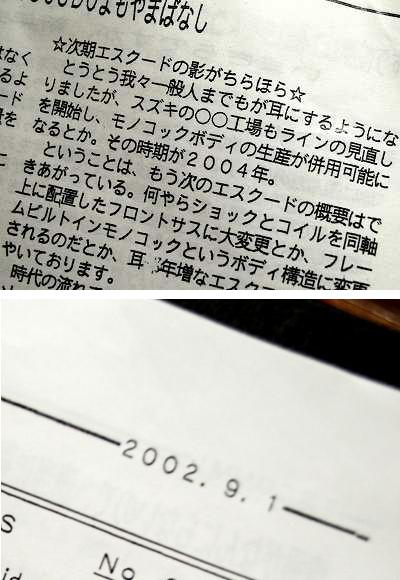 よもやまばなし
☆次期エスクードの影がちらほら☆
とうとう我々一般人までもが耳にするようにな
りましたが、スズキの〇〇工場もラインの見直し
を開始し、モノコックボディの生産が併用可能に
なるとか。その時期が２００４年。
ということは、もう次のエスクードの概要はで
きあがっている。何やらショックとコイルを同軸
上に配置したフロントサスに大変更とか、フレー
ムビルトインモノコックというボディ構造に変更
されるのだとか、耳年増なエスク
やいております。
時代の流れ
はなく
るよ
ード
2002.9.1
S
No
id